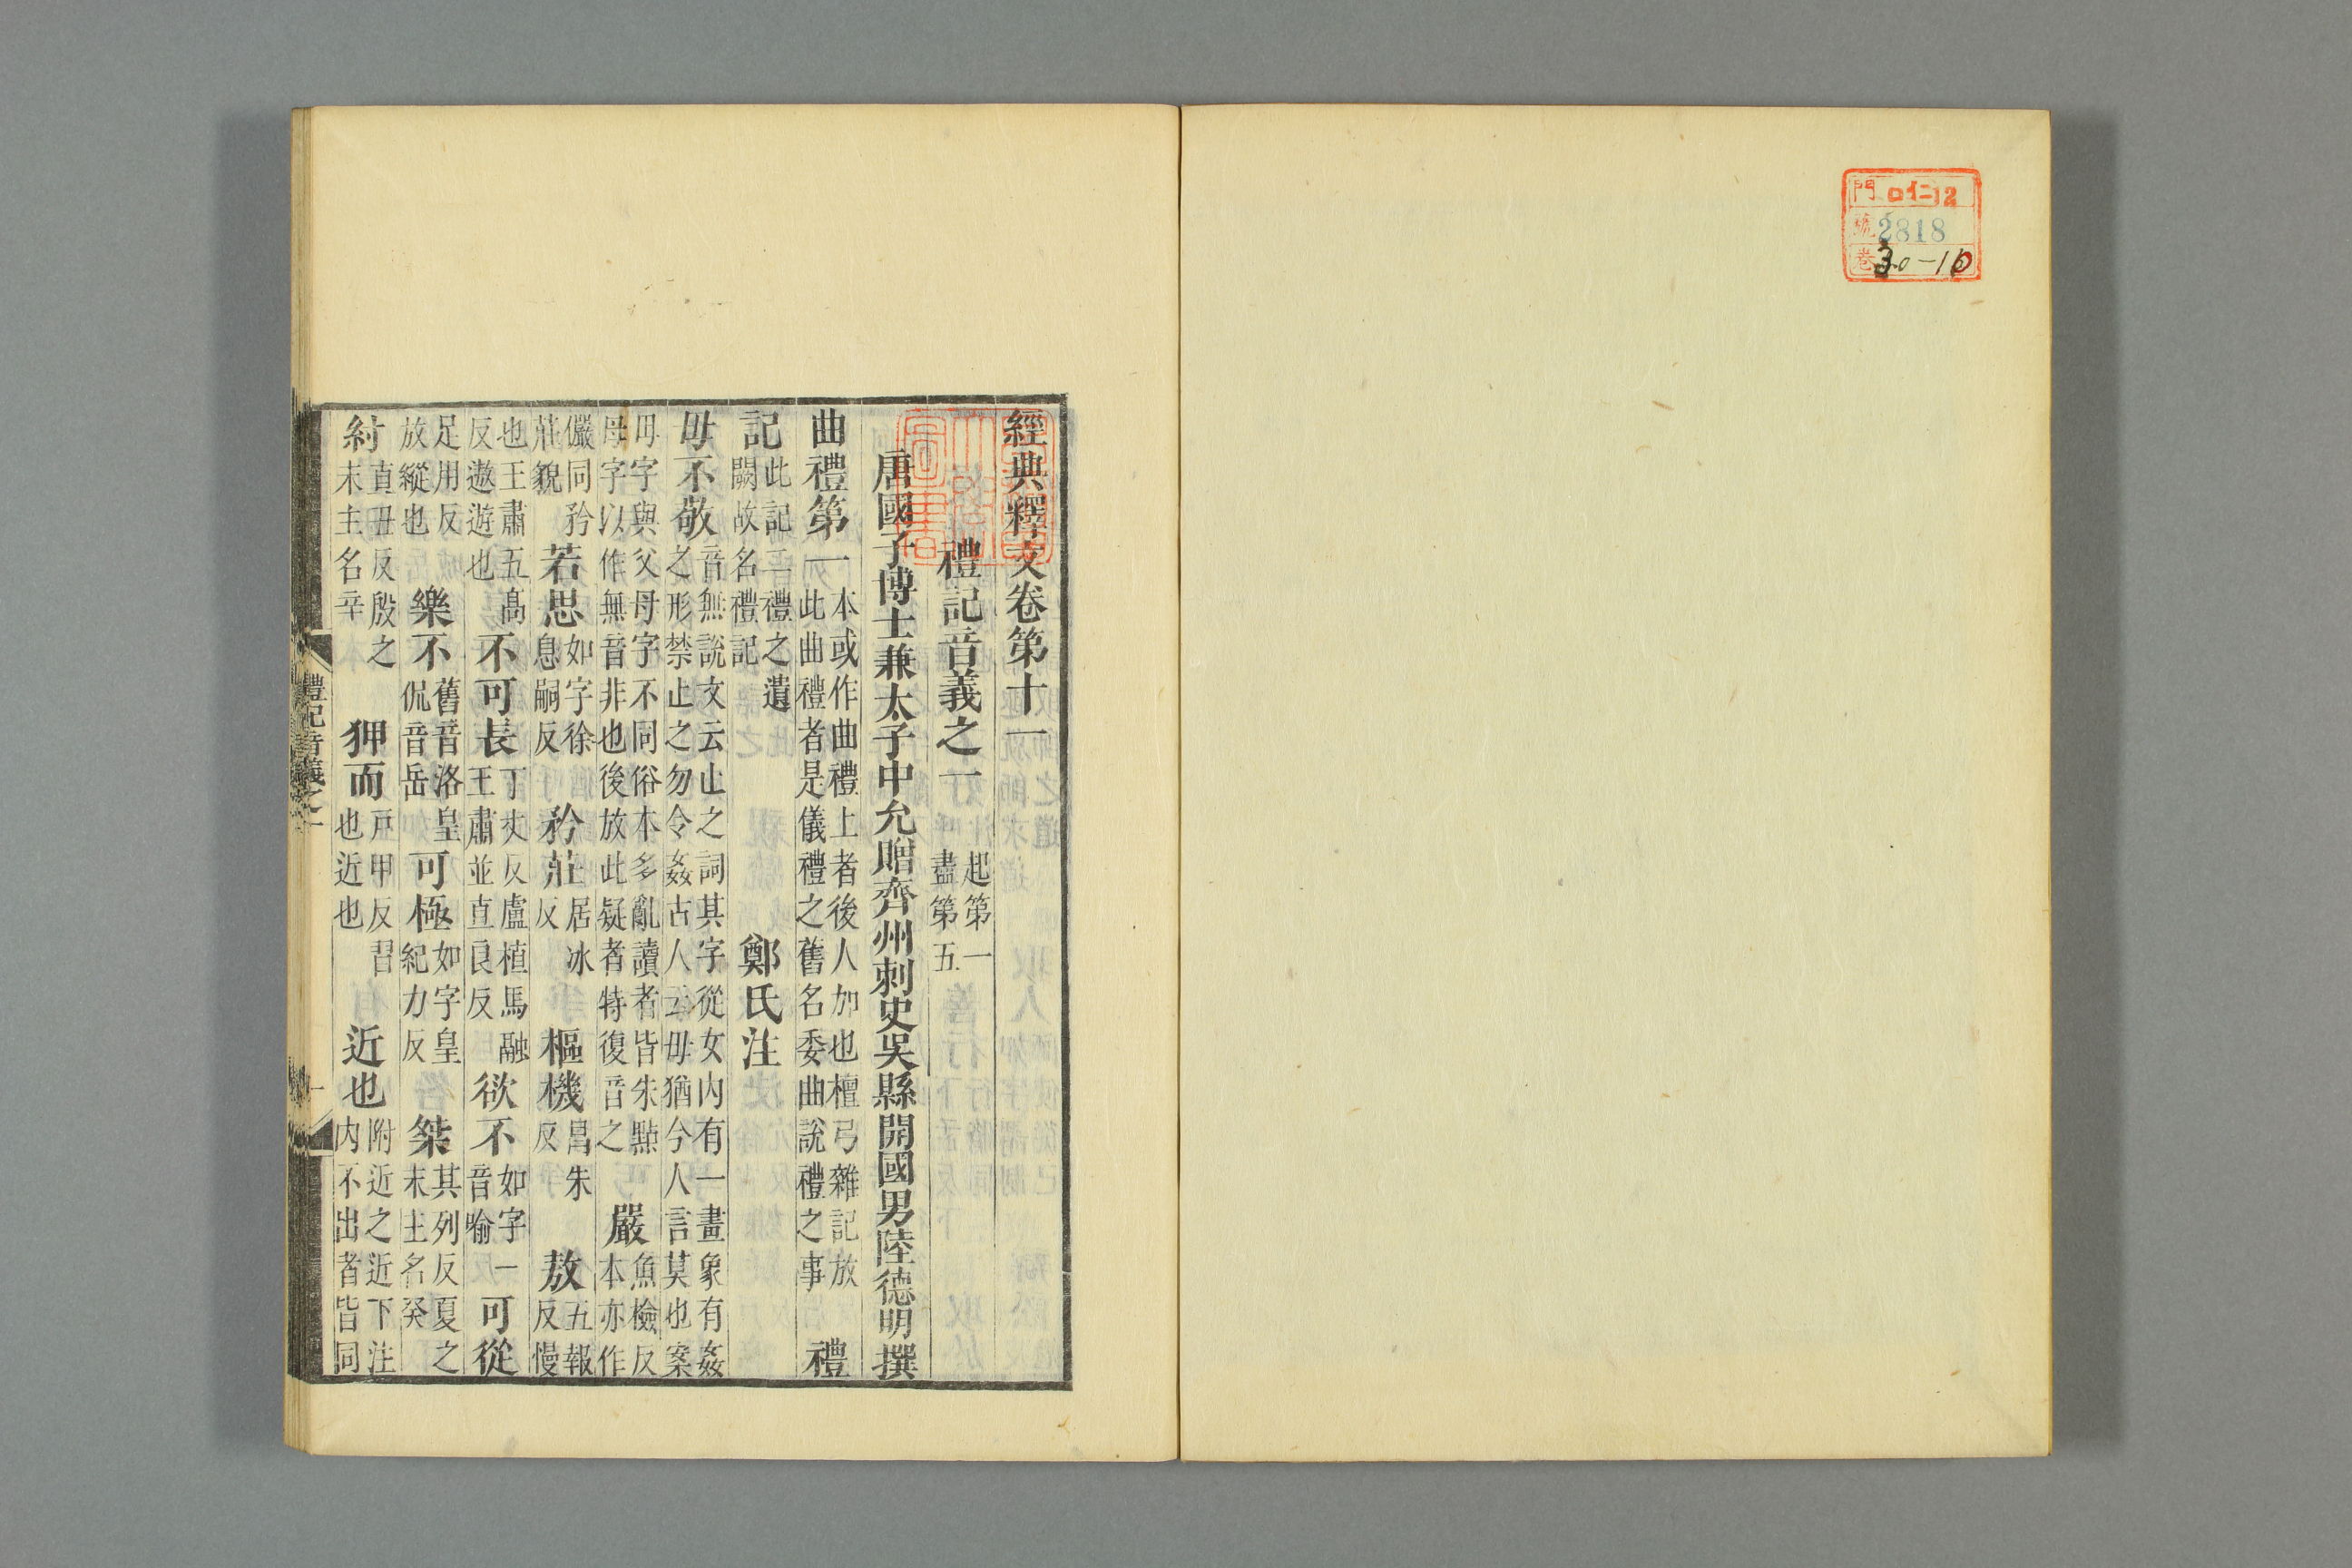 門 口仁12
號 2818
卷 30-10
經典釋文卷第十一
禮記音義之一 起第一盡第五
唐國子博士兼太子中允贈齊州刺史吳縣開國男陸德明撰
曲禮第一 本或作曲禮上者後人加也檀弓雜記放此曲禮者是儀禮之舊名委曲說禮之事 禮
記 此記二禮之遺闕故名禮記 鄭氏注
毋不敬 音無說文云止之詞其字從女内有一畫象有姦之形禁止之勿令姦古人云毋猶今人言莫也案
毋字與父母字不同俗本多亂讀者皆朱點母字以作無音非也後放此疑者特復音之 嚴 魚檢反本亦作
儼同矜莊貌 若思 如字徐息嗣反 矜莊 居冰反 樞機 昌朱反 敖 五報反慢
也王肅五高反遨遊也 不可長 丁丈反盧植馬融王肅並直良反 欲不 如字一音喻 可從
足用反放縱也 樂不 舊音洛皇侃音岳 可極 如字皇紀力反 桀 其列反夏之末主名癸
紂 直丑反殷之末主名辛 狎而 戸甲反習也近也 近也 附近之近下注内不出者皆同
禮記音義之一
一